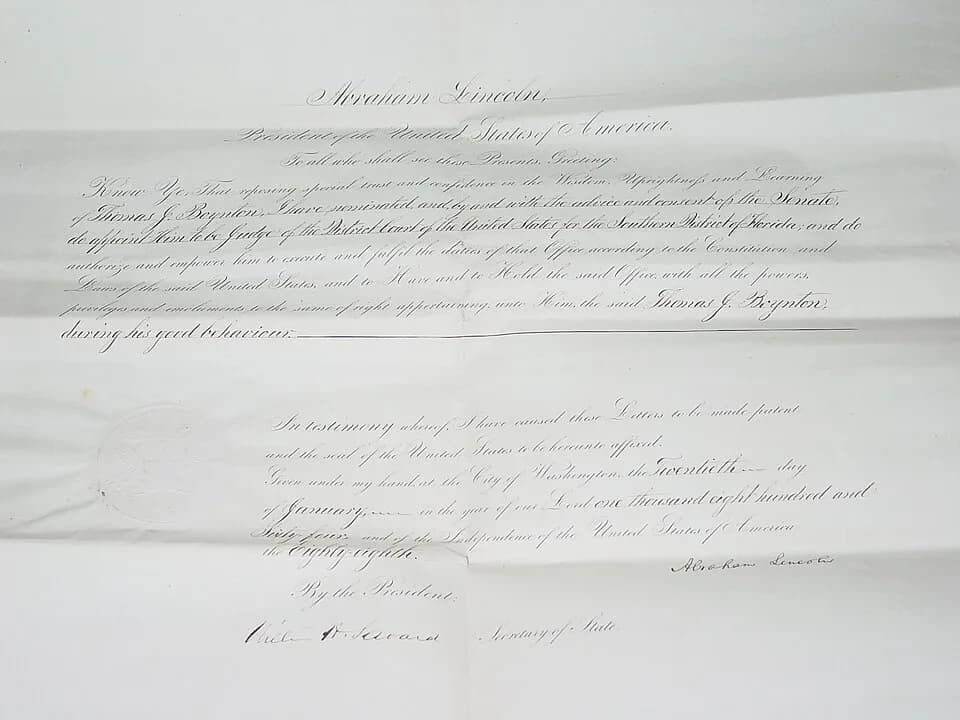 Abraham Lincoln,
President of the United States of America.
To all who shall see these Presents, Greeting:
Know Ye, That reposing special trust and confidence in the Wisdom, Uprightness and Learning
of Thomas J. Boynton, I have nominated, and, by and with the advice and consent of the Senate,
do appoint Him to be Judge of the District Court of the United States for the Southern District of Florida; and do
authorize and empower him to execute and fulfil the duties of that Office according to the Constitution and
Laws of the said United States, and to Have and to Hold the said Office, with all the powers,
privileges and emoluments to the same of right appertaining, unto Him, the said Thomas J. Boynton,
during his good behaviour.
In testimony whereof, I have caused these Letters to be made patent
and the seal of the United States to be hereunto affixed.
Given under my hand, at the City of Washington, the Twentieth day
of January, in the year of our Lord one thousand eight hundred and
Sixty four, and of the Independence of the United States of America
the Eighty eighth.
Abraham Lincoln
By the President:
William H. Seward Secretary of State.